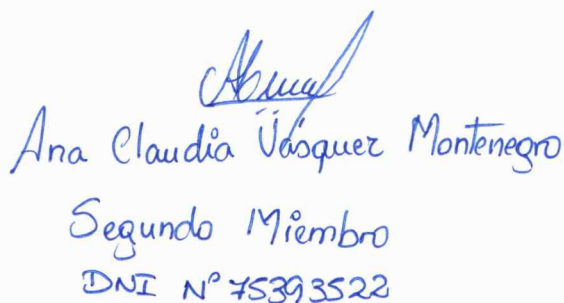 Ana Claudia Vásquez Montenegro
Segundo Miembro
DNI N° 75393522